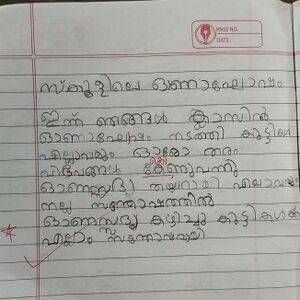 PAGE NO.
DATE:
സ്കൂളിലെ ഓണാഘോഷം
ഇന്ന് ഞങ്ങൾ ക്ലാസിൽ
ഓണാഘോഷം നടത്തി കുട്ടികൾ
എല്ലാവരും ഓരോ തരം
വിഭവങ്ങൾ കൊണ്ടുവന്നു
ഓണസദ്യ തയ്യാറായി എല്ലാവരും
നല്ല സന്തോഷത്തിൽ
ഓണസദ്യ കഴിച്ചു കുട്ടികൾക്ക്
എല്ലാം സന്തോഷമായി